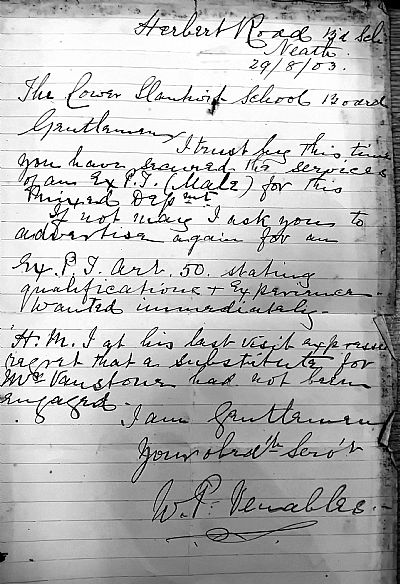 Herbert Road Bd Sch.
Neath.
29/8/03.
The Lower Llantwit School Board
Gentlemen,
I trust by this time
you have secured the services
of an Ex P.T. (Male) for this
Mixed Depmt
If not may I ask you to
advertise again for an
Ex. P.T. Art. 50. stating
qualifications + Experience
Wanted immediately.
H.M.I at his last visit expressed
regret that a substitute for
Mr Vanstone had not been
engaged
I am Gentlemen
Your obedt Servt
W. P. Venables.